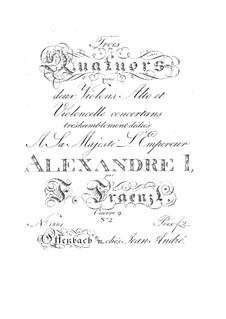 Trois
Quatuors
pour
deux Violons Alto et
Violoncelle concertans
très humblement dédiés
A Sa Majesté L'Empereur
ALEXANDRE I,
par
F. Fraenzl
Oeuvre 9
N.º 2
Offenbach s/m, chés Jean André.